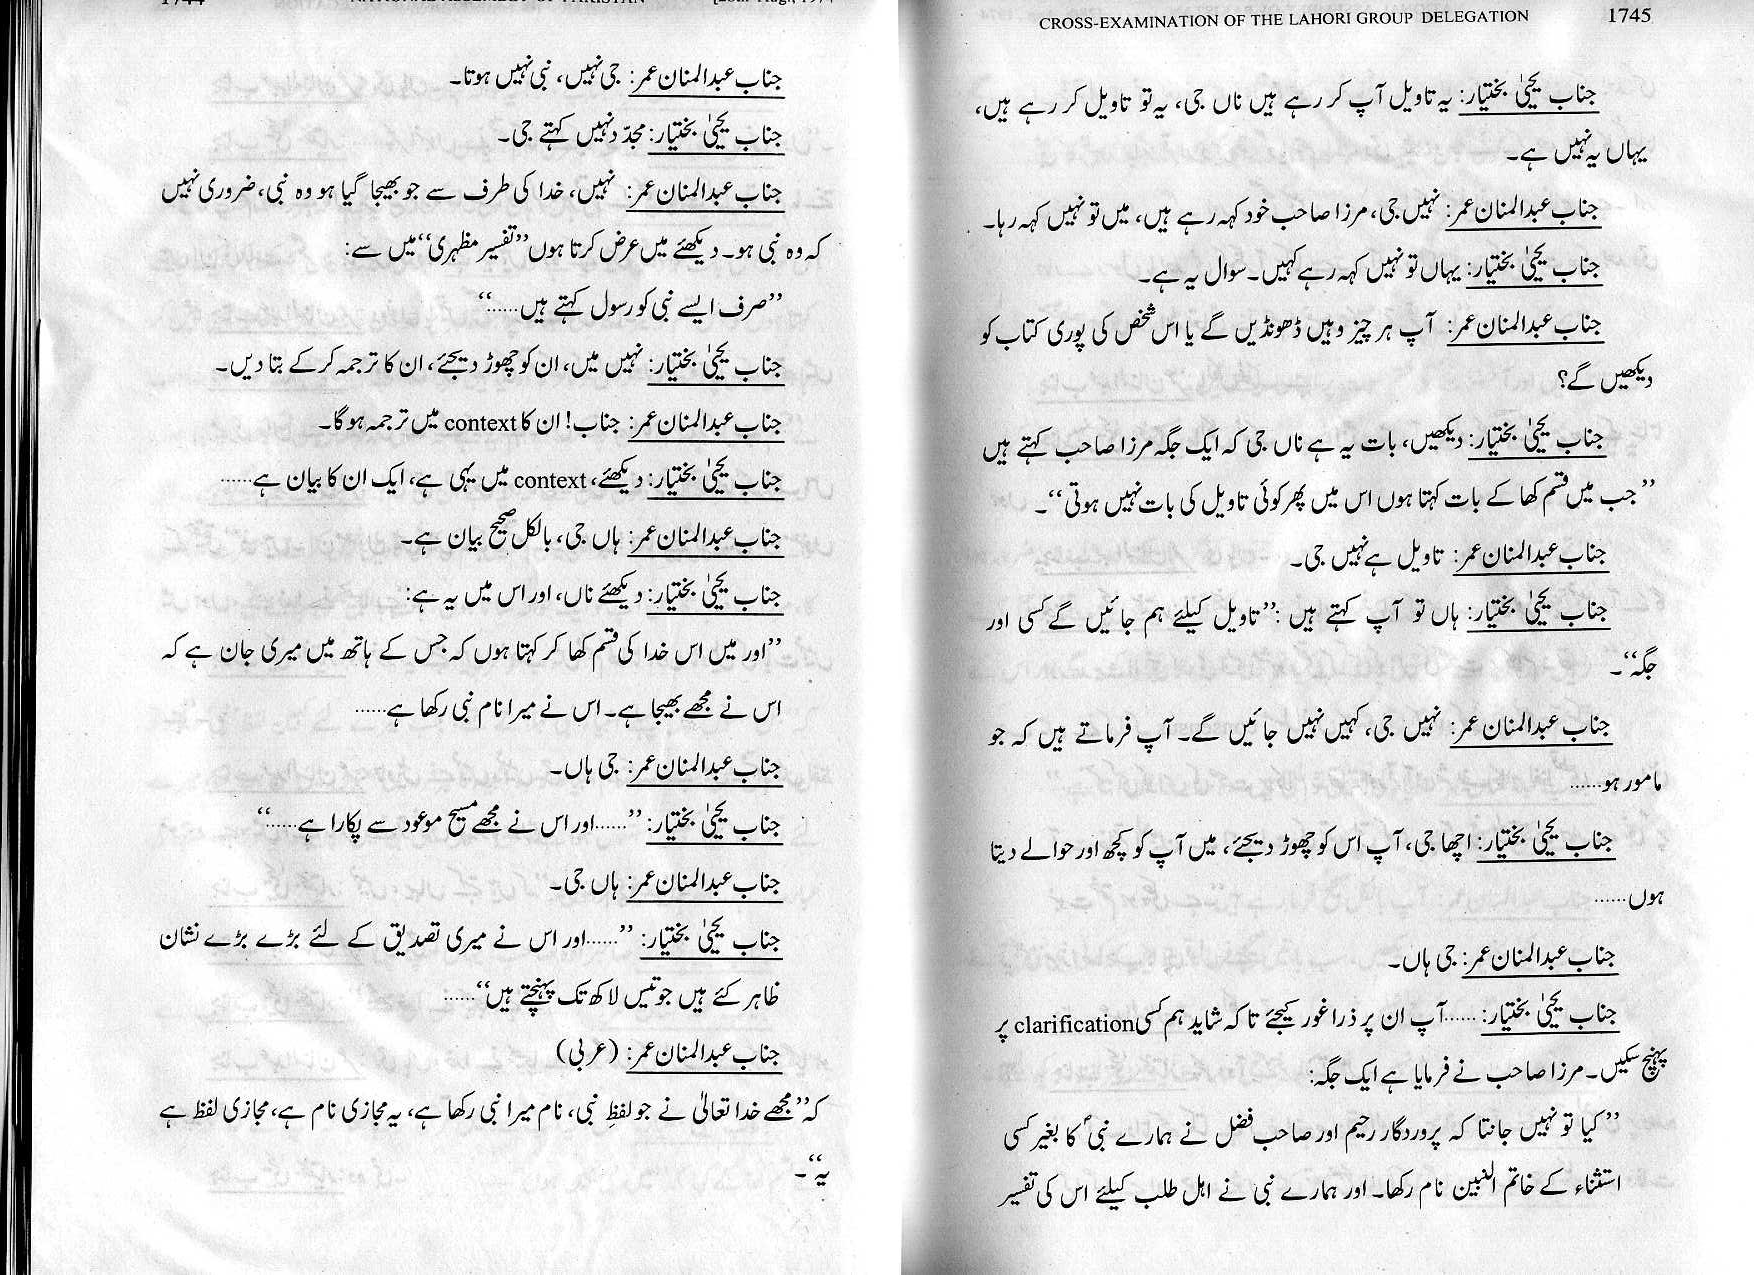 1744 NATIONAL ASSEMBLY OF PAKISTAN [28th Aug., 1974
جناب عبدالمنان عمر: جی نہیں، نبی نہیں ہوتا۔
جناب یحییٰ بختیار: مجدّد نہیں کہتے جی۔
جناب عبدالمنان عمر: نہیں، خدا کی طرف سے جو بھیجا گیا ہو وہ نبی، ضروری نہیں
کہ وہ نبی ہو۔ دیکھئے میں عرض کرتا ہوں ’’تفسیر مظہری‘‘ میں سے:
’’صرف ایسے نبی کو رسول کہتے ہیں......‘‘
جناب یحییٰ بختیار: نہیں میں، ان کو چھوڑ دیجئے، ان کا ترجمہ کر کے بتا دیں۔
جناب عبدالمنان عمر: جناب! ان کا context میں ترجمہ ہوگا۔
جناب یحییٰ بختیار: دیکھئے، context میں یہی ہے، ایک ان کا بیان ہے......
جناب عبدالمنان عمر: ہاں جی، بالکل صحیح بیان ہے۔
جناب یحییٰ بختیار: دیکھئے ناں، اور اس میں یہ ہے:
’’اور میں اس خدا کی قسم کھا کر کہتا ہوں کہ جس کے ہاتھ میں میری جان ہے کہ
اس نے مجھے بھیجا ہے۔ اس نے میرا نام نبی رکھا ہے......
جناب عبدالمنان عمر: جی ہاں۔
جناب یحییٰ بختیار: ’’......اور اس نے مجھے مسیح موعود سے پکارا ہے......‘‘
جناب عبدالمنان عمر: ہاں جی۔
جناب یحییٰ بختیار: ’’......اور اس نے میری تصدیق کے لئے بڑے بڑے نشان
ظاہر کئے ہیں جو تیس لاکھ تک پہنچتے ہیں‘‘......
جناب عبدالمنان عمر: (عربی)
کہ ’’مجھے خدا تعالیٰ نے جو لفظِ نبی، نام میرا نبی رکھا ہے، یہ مجازی نام ہے، مجازی لفظ ہے
یہ‘‘۔
CROSS-EXAMINATION OF THE LAHORI GROUP DELEGATION 1745
جناب یحییٰ بختیار: یہ تاویل آپ کر رہے ہیں ناں جی، یہ تو تاویل کر رہے ہیں،
یہاں یہ نہیں ہے۔
جناب عبدالمنان عمر: نہیں جی، مرزا صاحب خود کہہ رہے ہیں، میں تو نہیں کہہ رہا۔
جناب یحییٰ بختیار: یہاں تو نہیں کہہ رہے کہیں۔ سوال یہ ہے۔
جناب عبدالمنان عمر: آپ ہر چیز وہیں ڈھونڈیں گے یا اس شخص کی پوری کتاب کو
دیکھیں گے؟
جناب یحییٰ بختیار: دیکھیں، بات یہ ہے ناں جی کہ ایک جگہ مرزا صاحب کہتے ہیں
’’جب میں قسم کھا کے بات کہتا ہوں اس میں پھر کوئی تاویل کی بات نہیں ہوتی‘‘۔
جناب عبدالمنان عمر: تاویل ہے نہیں جی۔
جناب یحییٰ بختیار: ہاں تو آپ کہتے ہیں: ’’تاویل کیلئے ہم جائیں گے کسی اور
جگہ‘‘۔
جناب عبدالمنان عمر: نہیں جی، کہیں نہیں جائیں گے۔ آپ فرماتے ہیں کہ جو
مامور ہو......
جناب یحییٰ بختیار: اچھا جی، آپ اس کو چھوڑ دیجئے، میں آپ کو کچھ اور حوالے دیتا
ہوں......
جناب عبدالمنان عمر: جی ہاں۔
جناب یحییٰ بختیار: ......آپ ان پر ذرا غور کیجئے تا کہ شاید ہم کسی clarification پر
پہنچ سکیں۔ مرزا صاحب نے فرمایا ہے ایک جگہ:
’’کیا تو نہیں جانتا کہ پروردگار رحیم اور صاحب فضل نے ہمارے نبیؐ کا بغیر کسی
استثناء کے خاتم النبین نام رکھا۔ اور ہمارے نبی نے اہل طلب کیلئے اس کی تفسیر